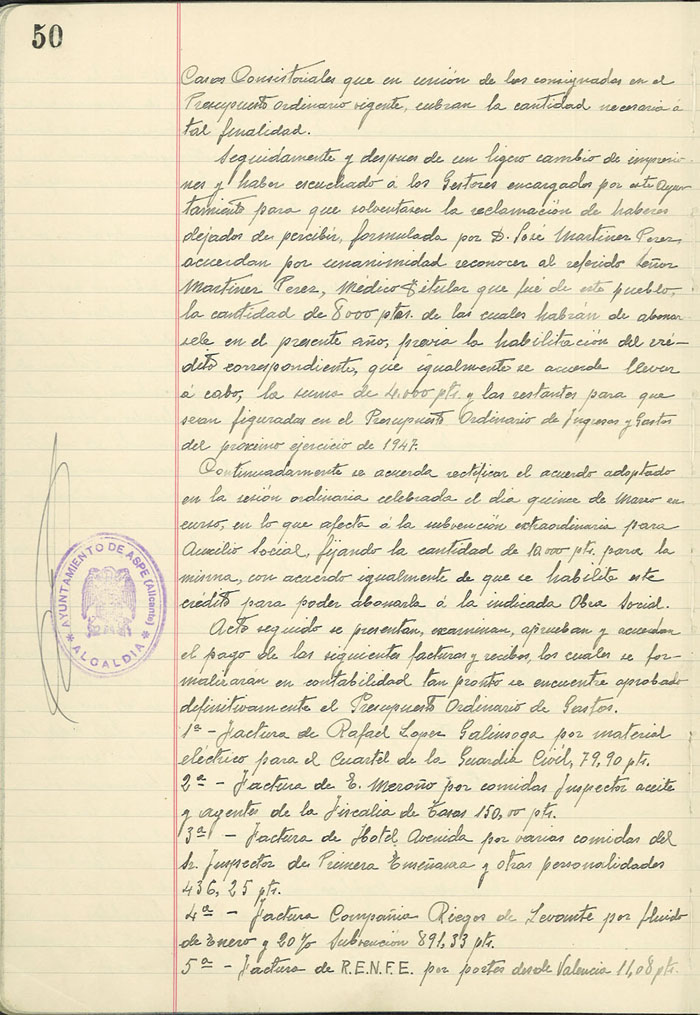 50
Casas Consistoriales que en unión de los consignados en el
Presupuesto ordinario vigente, cubran la cantidad necesaria á
tal finalidad.
Seguidamente y despues de un ligero cambio de impresio-
nes y haber escuchado á los Gestores encargados por este Ayun-
tamiento para que solventasen la reclamación de haberes
dejados de percibir, formulada por D. José Martinez Perez,
acuerdan por unanimidad reconocer al referido señor
Martinez Perez, Médico titular que fué de este pueblo,
la cantidad de 8000 ptas. de las cuales habrán de abonar-
sele en el presente año, previa la habilitación del cré-
dito correspondiente, que igualmente se acuerda llevar
á cabo, la suma de 4.000 pts. y las restantes para que
sean figuradas en el Presupuesto Ordinario de Ingresos y Gastos
del proximo ejercicio de 1947.
Continuadamente se acuerda rectificar el acuerdo adoptado
en la sesión ordinaria celebrada el dia quince de Marzo en
curso, en lo que afecta á la subvención extraordinaria para
Auxilio Social, fijando la cantidad de 10.000 pts. para la
misma, con acuerdo igualmente de que se habilite este
crédito para poder abonarla á la indicada Obra Social.
Acto seguido se presentan, examinan, aprueban y acuerdan
el pago de las siguientes facturas y recibos, los cuales se for-
malizaran en contabilidad tan pronto se encuentre aprobado
definitivamente el Presupuesto Ordinario de Gastos.
1ª - Factura de Rafael Lopez Galinsoga por material
eléctrico para el Cuartel de la Guardia Civil, 79,90 pts.
2ª - Factura de E. Meroño por comidas Inspector aceite
y agentes de la Fiscalia de Tasas 150,00 pts.
3ª - Factura de Hotel Avenida por varias comidas del
Sr. Inspector de Primera Enseñanza y otras personalidades
436,25 pts.
4ª - Factura Compañia Riegos de Levante por fluido
de Enero y 20% Subvención 891,33 pts.
5ª - Factura de R.E.N.F.E. por portes desde Valencia 11,08 pts.
AYUNTAMIENTO DE ASPE (Alicante)
* ALCALDIA *